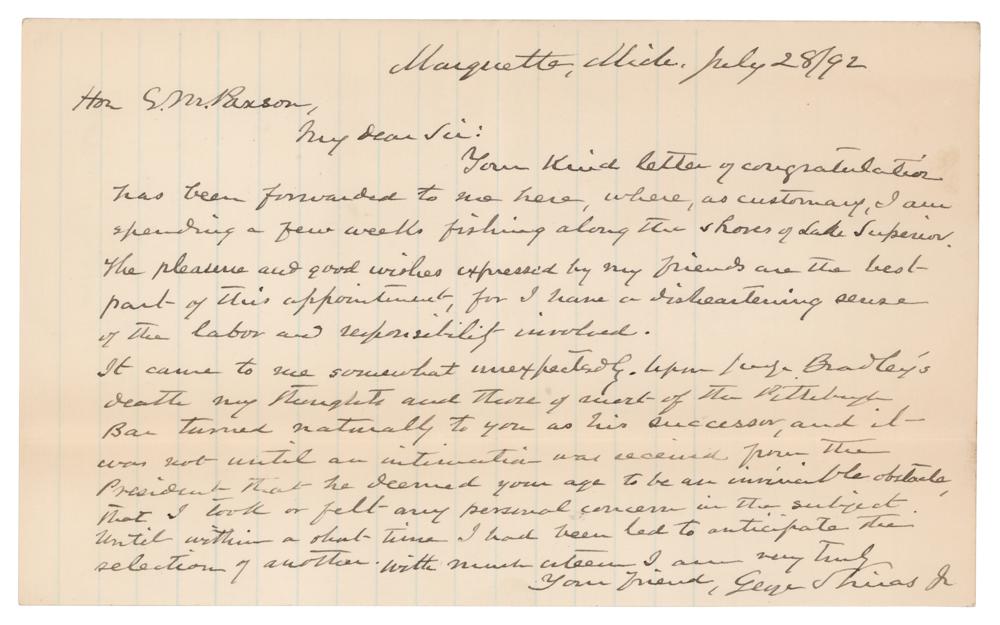 Marquette, Mich. July 28/92
Hon E. M. Paxson,
My dear Sir:
Your kind letter of congratulation
has been forwarded to me here, where, as customary, I am
spending a few weeks fishing along the shores of Lake Superior.
The pleasure and good wishes expressed by my friends are the best
part of this appointment, for I have a disheartening sense
of the labor and responsibility involved.
It came to me somewhat unexpectedly. Upon Judge Bradley's
death my thoughts and those of most of the Pittsburgh
Bar turned naturally to you as his successor, and it
was not until an intimation was received from the
President that he deemed your age to be an invincible obstacle,
that I took or felt any personal concern in the subject.
Until within a short time I had been led to anticipate the
selection of another. With much esteem I am very truly
Your friend, George Shiras Jr